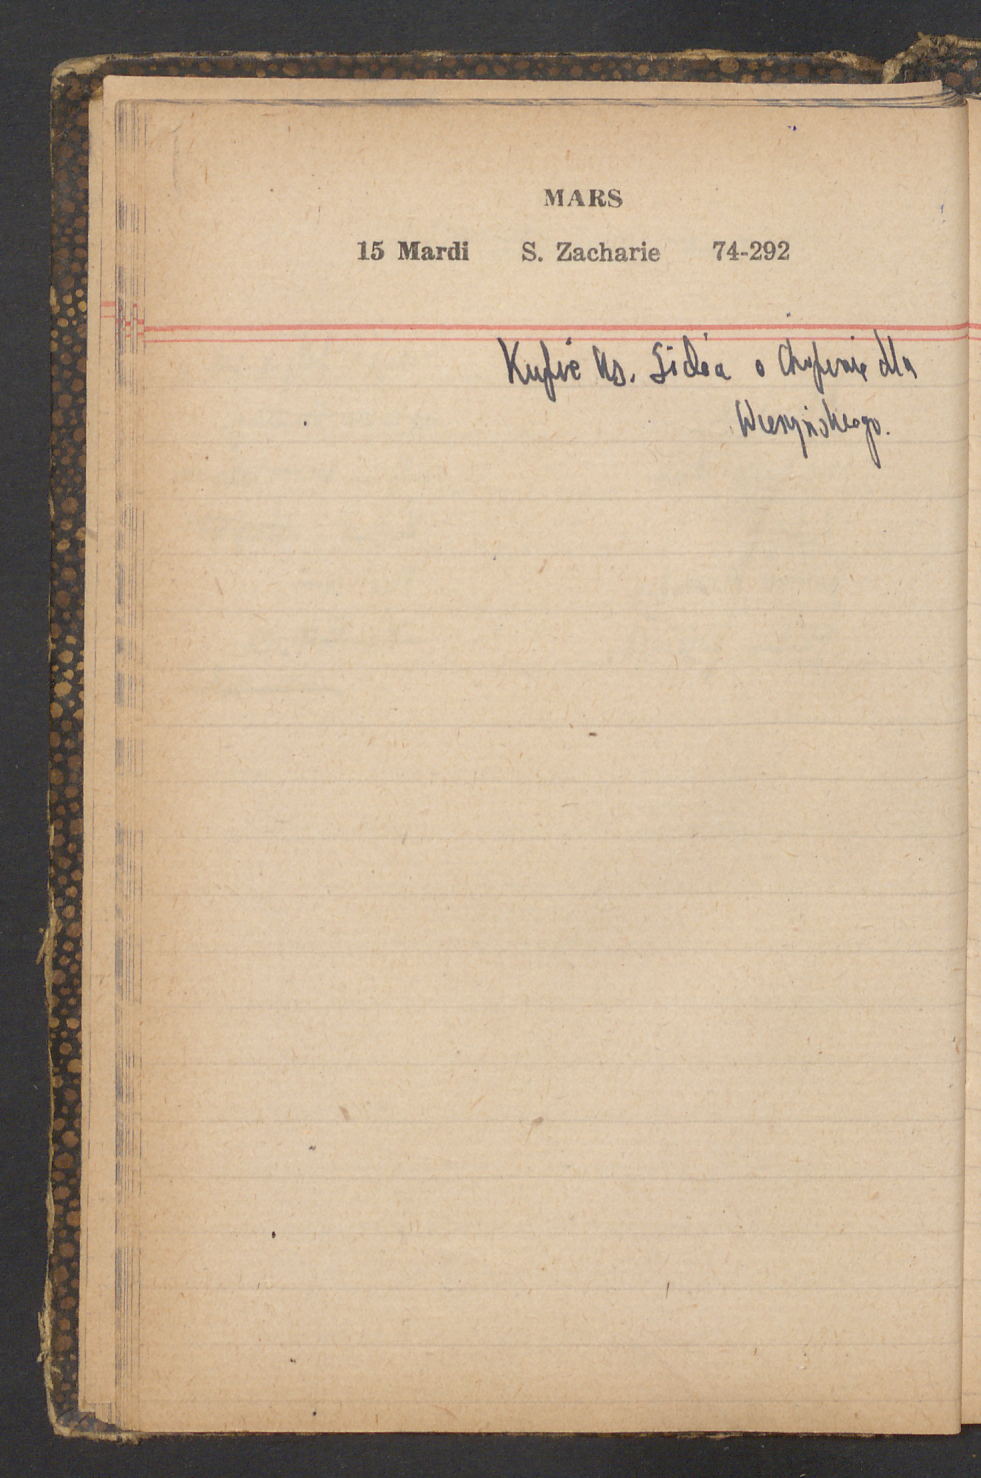 MARS
15 Mardi S. Zacharie 74-292
Kupić ks. Gide'a o Chopinie dla
Wierzyńskiego.